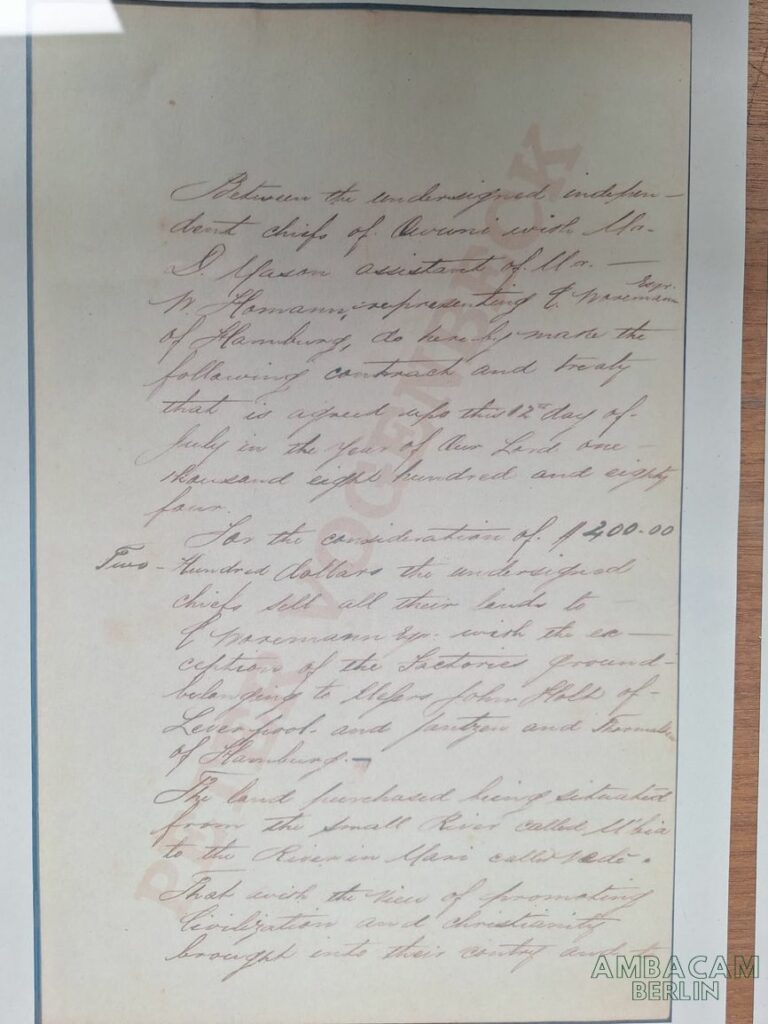 Between the undersigned indepen-
dent chiefs of Owuni with Mr.
D. Mason assistant of Mr. —
W. Homann, representing C. Woremann Esqr.
of Hamburg, do here by make the
following contract and treaty
that is agreed upo this 12th day of-
July in the Year of Our Lord one
thousand eight hundred and eighty
four.
For the consideration of. $ 200.00
Two - Hundred dollars the undersigned
chiefs sell all their lands to
C Woremann Esqr. with the ex —
ception of the Factories ground-
belonging to Messrs John Holt of-
Leverpool. and Jantzen and
of Hamburg. —
The land purchased being situated
from the small River called M'bia
to the River in Mari called
That with the View of promoting
Civilization and christianity
brought into their contry and
PETER VOGENBECK
AMBACAM
BERLIN